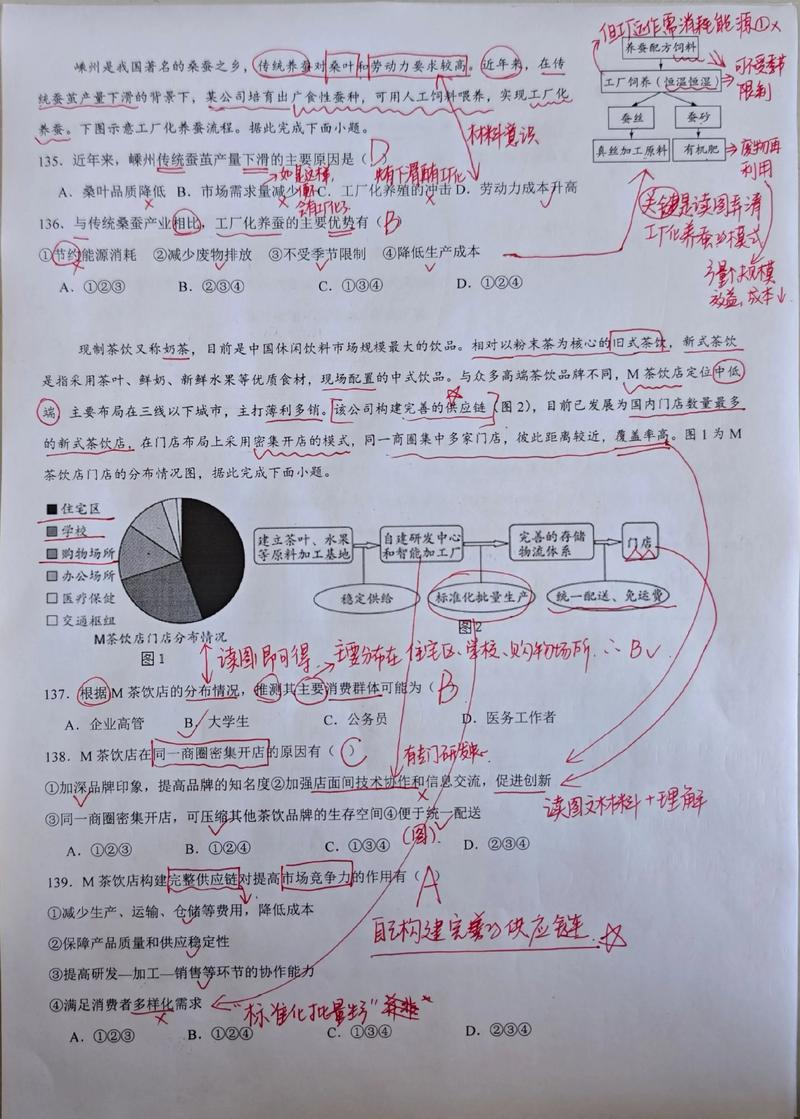 但工厂运作需消耗能源①×
嵊州是我国著名的桑蚕之乡，传统养蚕对桑叶和劳动力要求较高。近年来，在传
统蚕茧产量下滑的背景下，某公司培育出广食性蚕种，可用人工饲料喂养，实现工厂化
养蚕。下图示意工厂化养蚕流程。据此完成下面小题。
养蚕配方饲料
工厂饲养（恒温恒湿）
可不受季节
限制
蚕丝
蚕砂
真丝加工原料
有机肥
废物再
利用
材料意识
135．近年来，嵊州传统蚕茧产量下滑的主要原因是（D）
A．桑叶品质降低 B．市场需求量减少 C．工厂化养殖的冲击 D．劳动力成本升高
如是这样，
先有下滑再有工厂化
136．与传统桑蚕产业相比，工厂化养蚕的主要优势有（B）
①节约能源消耗 ②减少废物排放 ③不受季节限制 ④降低生产成本
A．①②③ B．②③④ C．①③④ D．①②④
关键是读图弄清
工厂化养蚕的模式
规模
效益，成本↓
现制茶饮又称奶茶，目前是中国休闲饮料市场规模最大的饮品。相对以粉末茶为核心的旧式茶饮，新式茶饮
是指采用茶叶、鲜奶、新鲜水果等优质食材，现场配置的中式饮品。与众多高端茶饮品牌不同，M茶饮店定位中低
端，主要布局在三线以下城市，主打薄利多销。该公司构建完善的供应链（图2），目前已发展为国内门店数量最多
的新式茶饮店，在门店布局上采用密集开店的模式，同一商圈集中多家门店，彼此距离较近，覆盖率高。图1为M
茶饮店门店的分布情况图，据此完成下面小题。
住宅区
学校
购物场所
办公场所
医疗保健
交通枢纽
M茶饮店门店分布情况
图1
建立茶叶、水果
等原料加工基地
自建研发中心
和智能加工厂
完善的存储
物流体系
门店
稳定供给
标准化批量生产
统一配送、免运费
图2
读图即可得，主要分布在住宅区、学校、购物场所．∴B√
137．根据M茶饮店的分布情况，推测其主要消费群体可能为（B）
A．企业高管 B．大学生 C．公务员 D．医务工作者
138．M茶饮店在同一商圈密集开店的原因有（C）
有专门研发中心
①加深品牌印象，提高品牌的知名度②加强店面间技术协作和信息交流，促进创新
③同一商圈密集开店，可压缩其他茶饮品牌的生存空间④便于统一配送
读图文材料＋理解
（图）
A．①②③ B．①②④ C．①③④ D．②③④
139．M茶饮店构建完整供应链对提高市场竞争力的作用有（ ）
A
①减少生产、运输、仓储等费用，降低成本
②保障产品质量和供应稳定性
自己构建完善的供应链
③提高研发—加工—销售等环节的协作能力
④满足消费者多样化需求
“标准化批量生产”
A．①②③ B．①②④ C．①③④ D．②③④